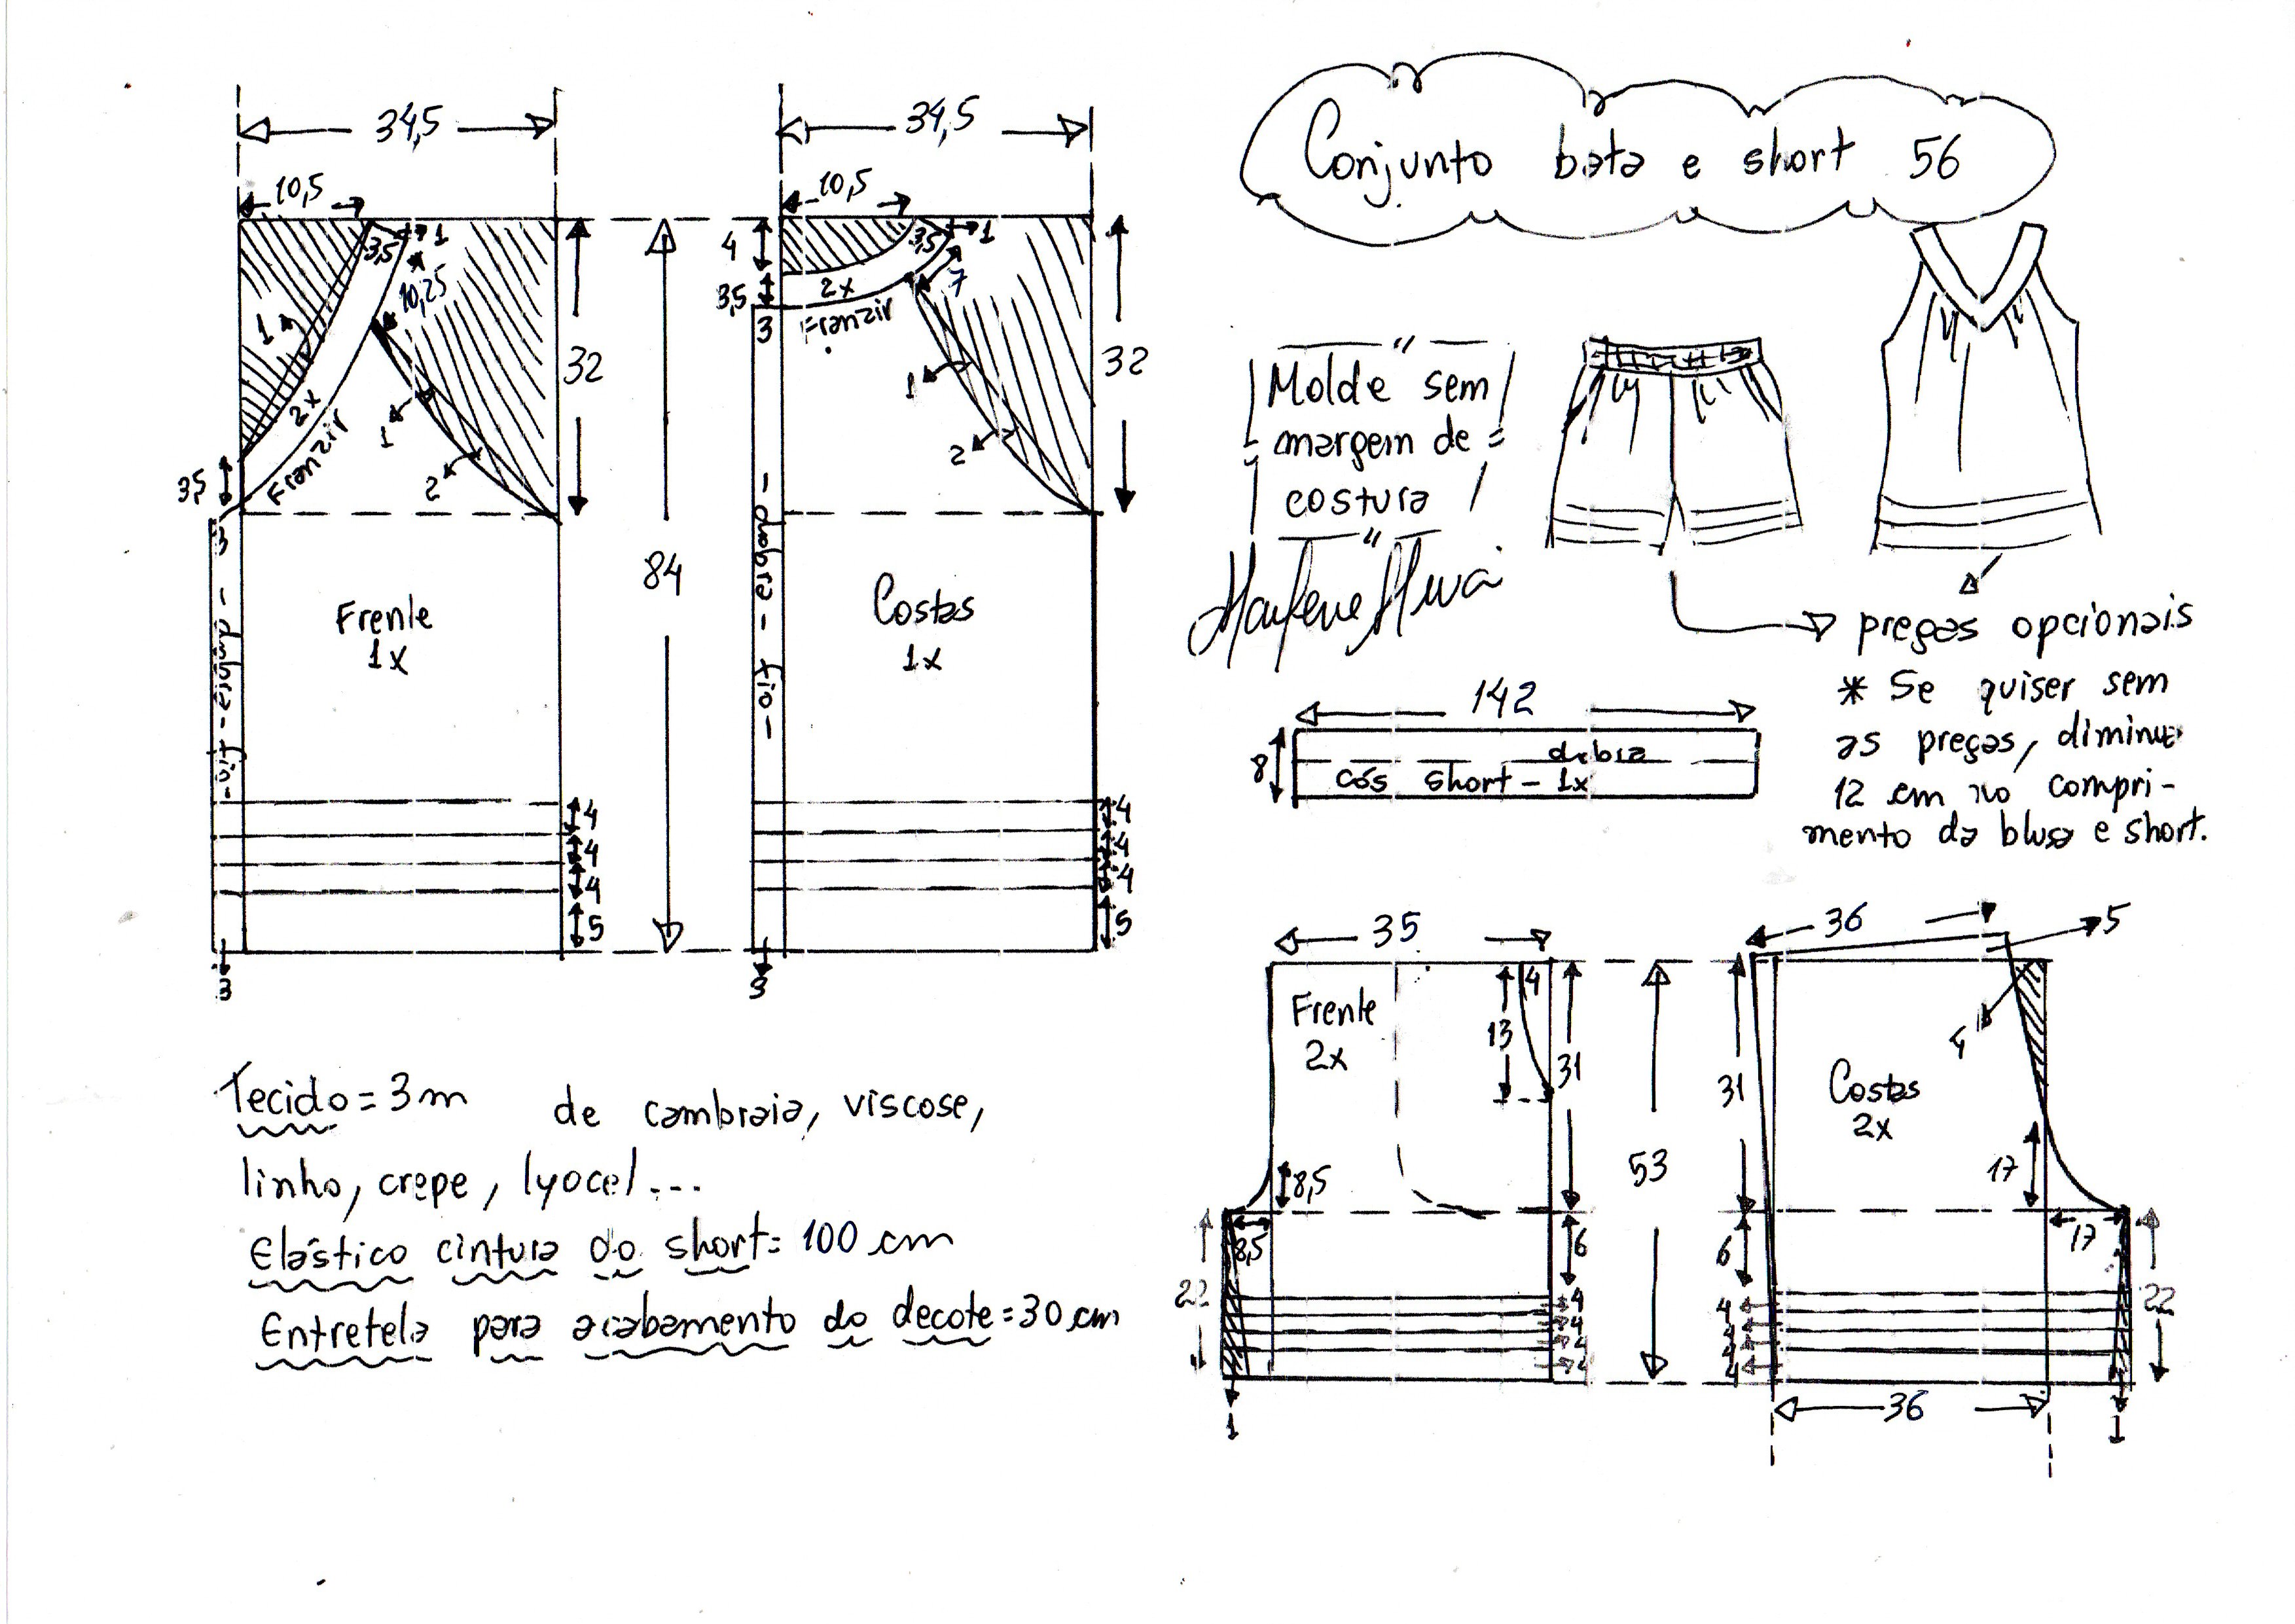 Conjunto bata e short 56
34,5
10,5
3,5
1
10,25
1
2x
Franzir
3,5
3
1
2
32
dobra - fio
Frente
1x
4
4
4
5
3
84
34,5
10,5
4
3,5
3,5
1
7
2x
Franzir
3
1
2
32
- dobra - fio -
Costas
1x
4
4
4
5
3
"
Molde sem
margem de
costura
"
pregas opcionais
* Se quiser sem
as pregas, diminue
12 cm no compri-
mento da blusa e short.
142
8
dobra
cós short - 1x
Tecido = 3m de cambraia, viscose,
linho, crepe, lyocel...
Elástico cintura do short= 100 cm
Entretela para acabamento do decote = 30 cm
35
Frente
2x
4
13
31
8,5
8,5
22
6
4
4
4
4
1
53
36
5
4
31
Costas
2x
17
17
6
4
4
4
4
22
36
1